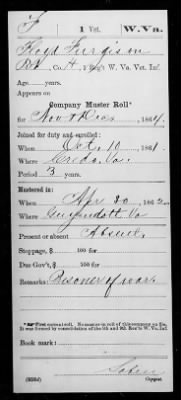 F | 1 Vet. | W. Va.
Floyd Furgison
Pvt., Co. H, 1 Reg't W. Va. Vet. Inf.
Age years.
Appears on
Company Muster Roll*
for Nov & Dec, 1864.
Joined for duty and enrolled:
When Oct. 10, 1861.
Where Credo, Va.
Period 3 years.
Mustered in:
When Apr 20, 1862.
Where Guyandott Va
Present or absent Absent.
Stoppage, $ 100 for
Due Gov't, $ 100 for
Remarks: Prisoner of war
*First current roll.
Book mark:
(858d) Copyist.